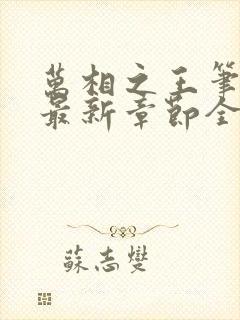 萬相之王筆
最新章節全
蘇志燮